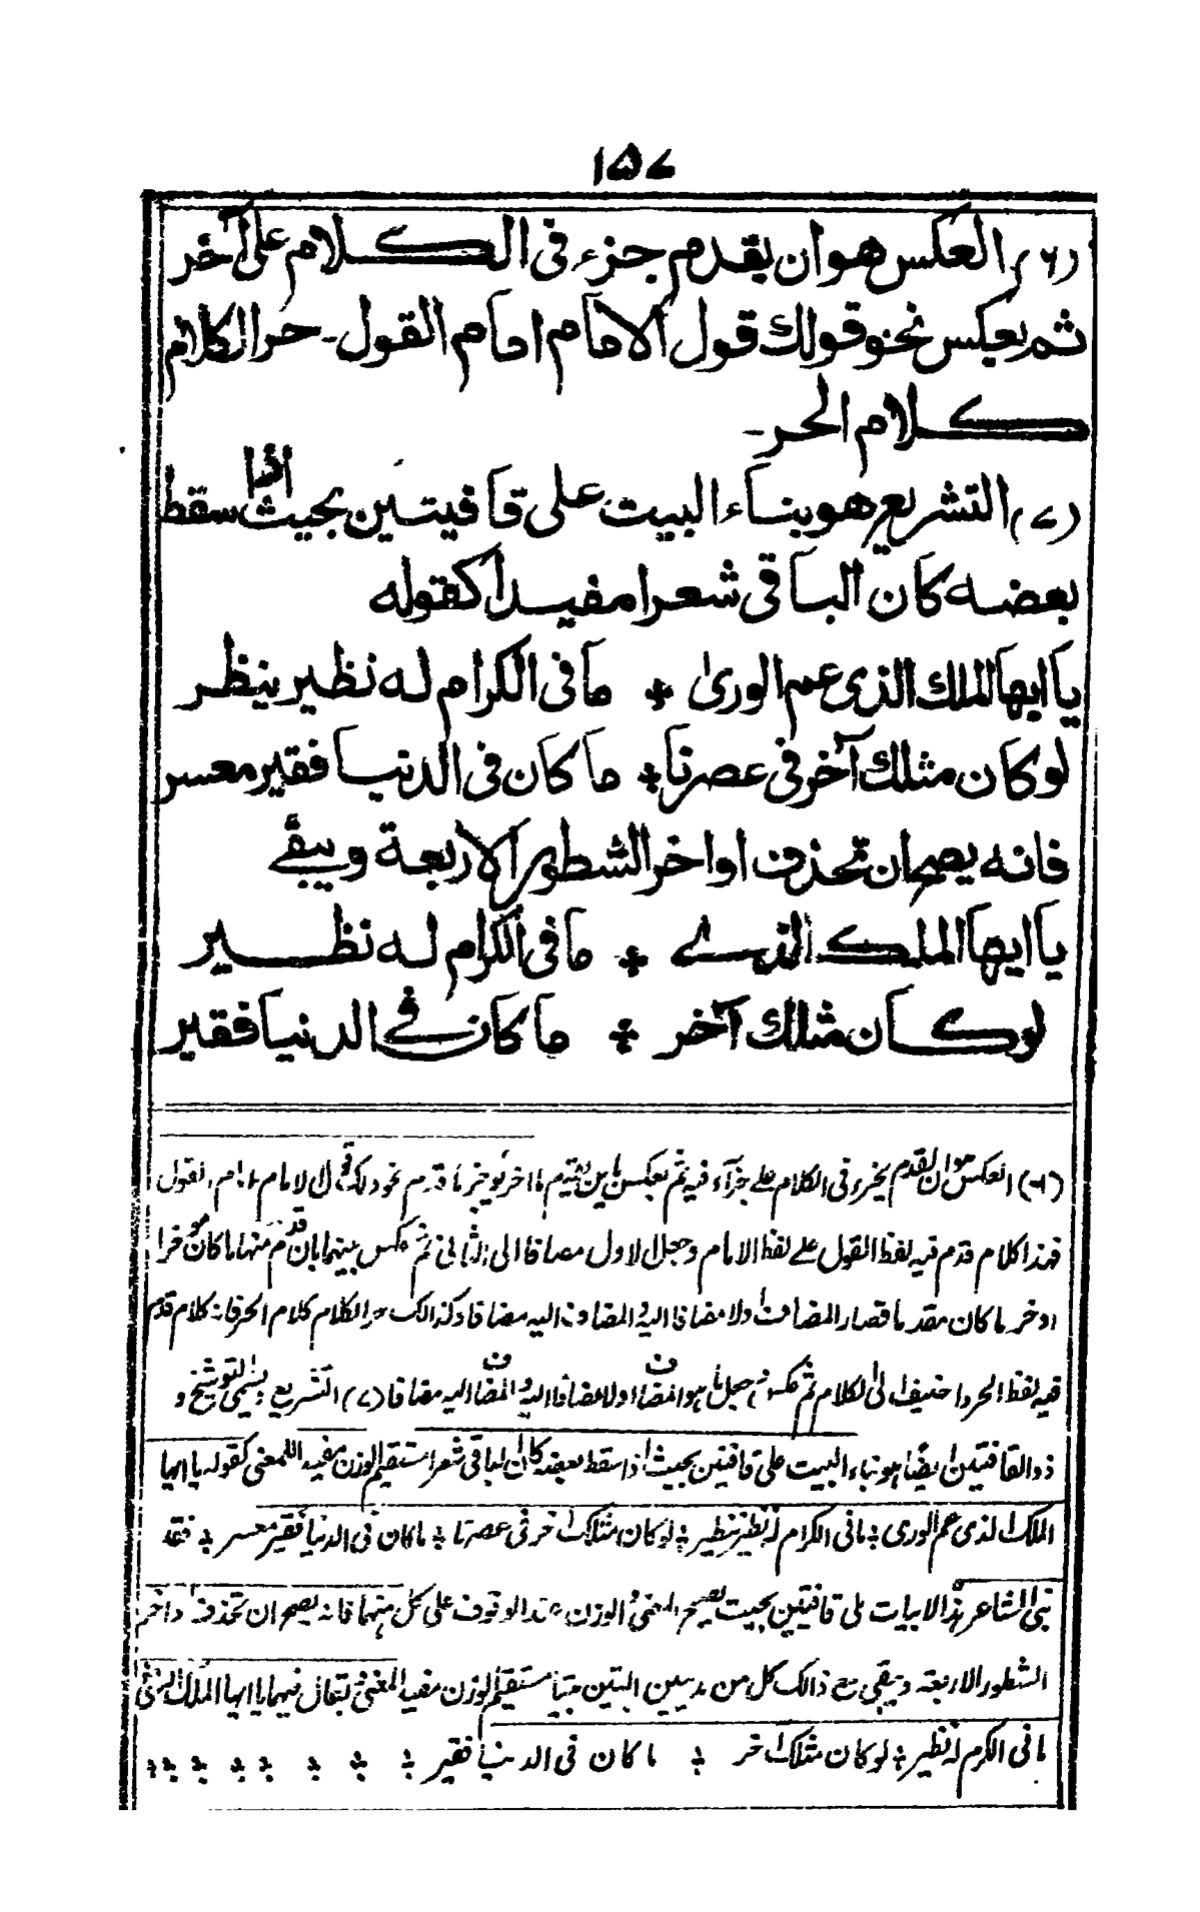 ١٥٧
(٦) العكس هو ان يقدم جزء فى الكلام على آخر
ثم يعكس نحو قولك قول الامام امام القول۔ حر الكلام
كلام الحر۔
(٧) التشريع هو بناء البيت على قافيتين بحيث اذا سقط
بعضه كان الباقى شعرا مفيدا كقوله
يا ايها الملك الذى عم الورىٰ ٭ ما فى الكرام له نظير ينظر
لو كان مثلك آخر فى عصرنا ٭ ما كان فى الدنيا فقير معسر
فانه يصح ان تحذف اواخر الشطور الاربعة ويبقى
يا ايها الملك الذى ٭ ما فى الكرام له نظير
لو كان مثلك آخر ٭ ما كان فى الدنيا فقير
(٦) العكس هو ان يقدم جزء فى الكلام على جزء آخر فيه ثم يعكس بان يقدم ما اخر ويؤخر ما قدم نحو قولك قول الامام امام القول
فهذا كلام قدم فيه لفظ القول على لفظ الامام وجعل الاول مضافا الى الثانى ثم عكس بينهما بان قدم منهما ما كان مؤخرا
واخر ما كان مقدما فصار المضاف اولا مضافا اليه والمضاف اليه مضافا وكذالك حر الكلام كلام الحر فانه كلام قدم
فيه لفظ الحر واضيف الى الكلام ثم عكس جعل ما هو المضاف اولا مضافا اليه والمضاف اليه مضافا (٧) التشريع ويسمى التوشيح و
ذو القافيتين ايضا هو بناء البيت على قافيتين بحيث اذا سقط بعضه كان الباقى شعرا مستقيم الوزن مفيد المعنى كقوله يا ايها
الملك الذى عم الورى ٭ ما فى الكرام له نظير ينظر ٭ لو كان مثلك آخر فى عصرنا ٭ ما كان فى الدنيا فقير معسر ٭ فقد
بنى الشاعر هذه الابيات على قافيتين بحيث يصح المعنى والوزن عند الوقوف على كل منهما فانه يصح ان تحذف اواخر
الشطور الاربعة ويبقى مع ذالك كل من البيتين مستقيم الوزن مفيد المعنى يقال فيهما يا ايها الملك الذى
ما فى الكرم له نظير ٭ لو كان مثلك آخر ٭ ما كان فى الدنيا فقير ٭ ٭ ٭ ٭ ٭ ٭ ٭ ٭